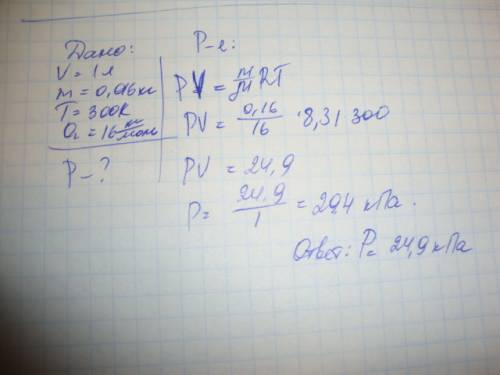 Дано:
V = 1 л
m = 0,016 кг
T = 300К
O₂ = 16 кг/моль
P - ?
P-е:
PV = m/M RT
PV = 0,16/16 · 8,31 300
PV = 24,9
P = 24,9/1 = 29,4 кПа.
Ответ: P = 24,9 кПа